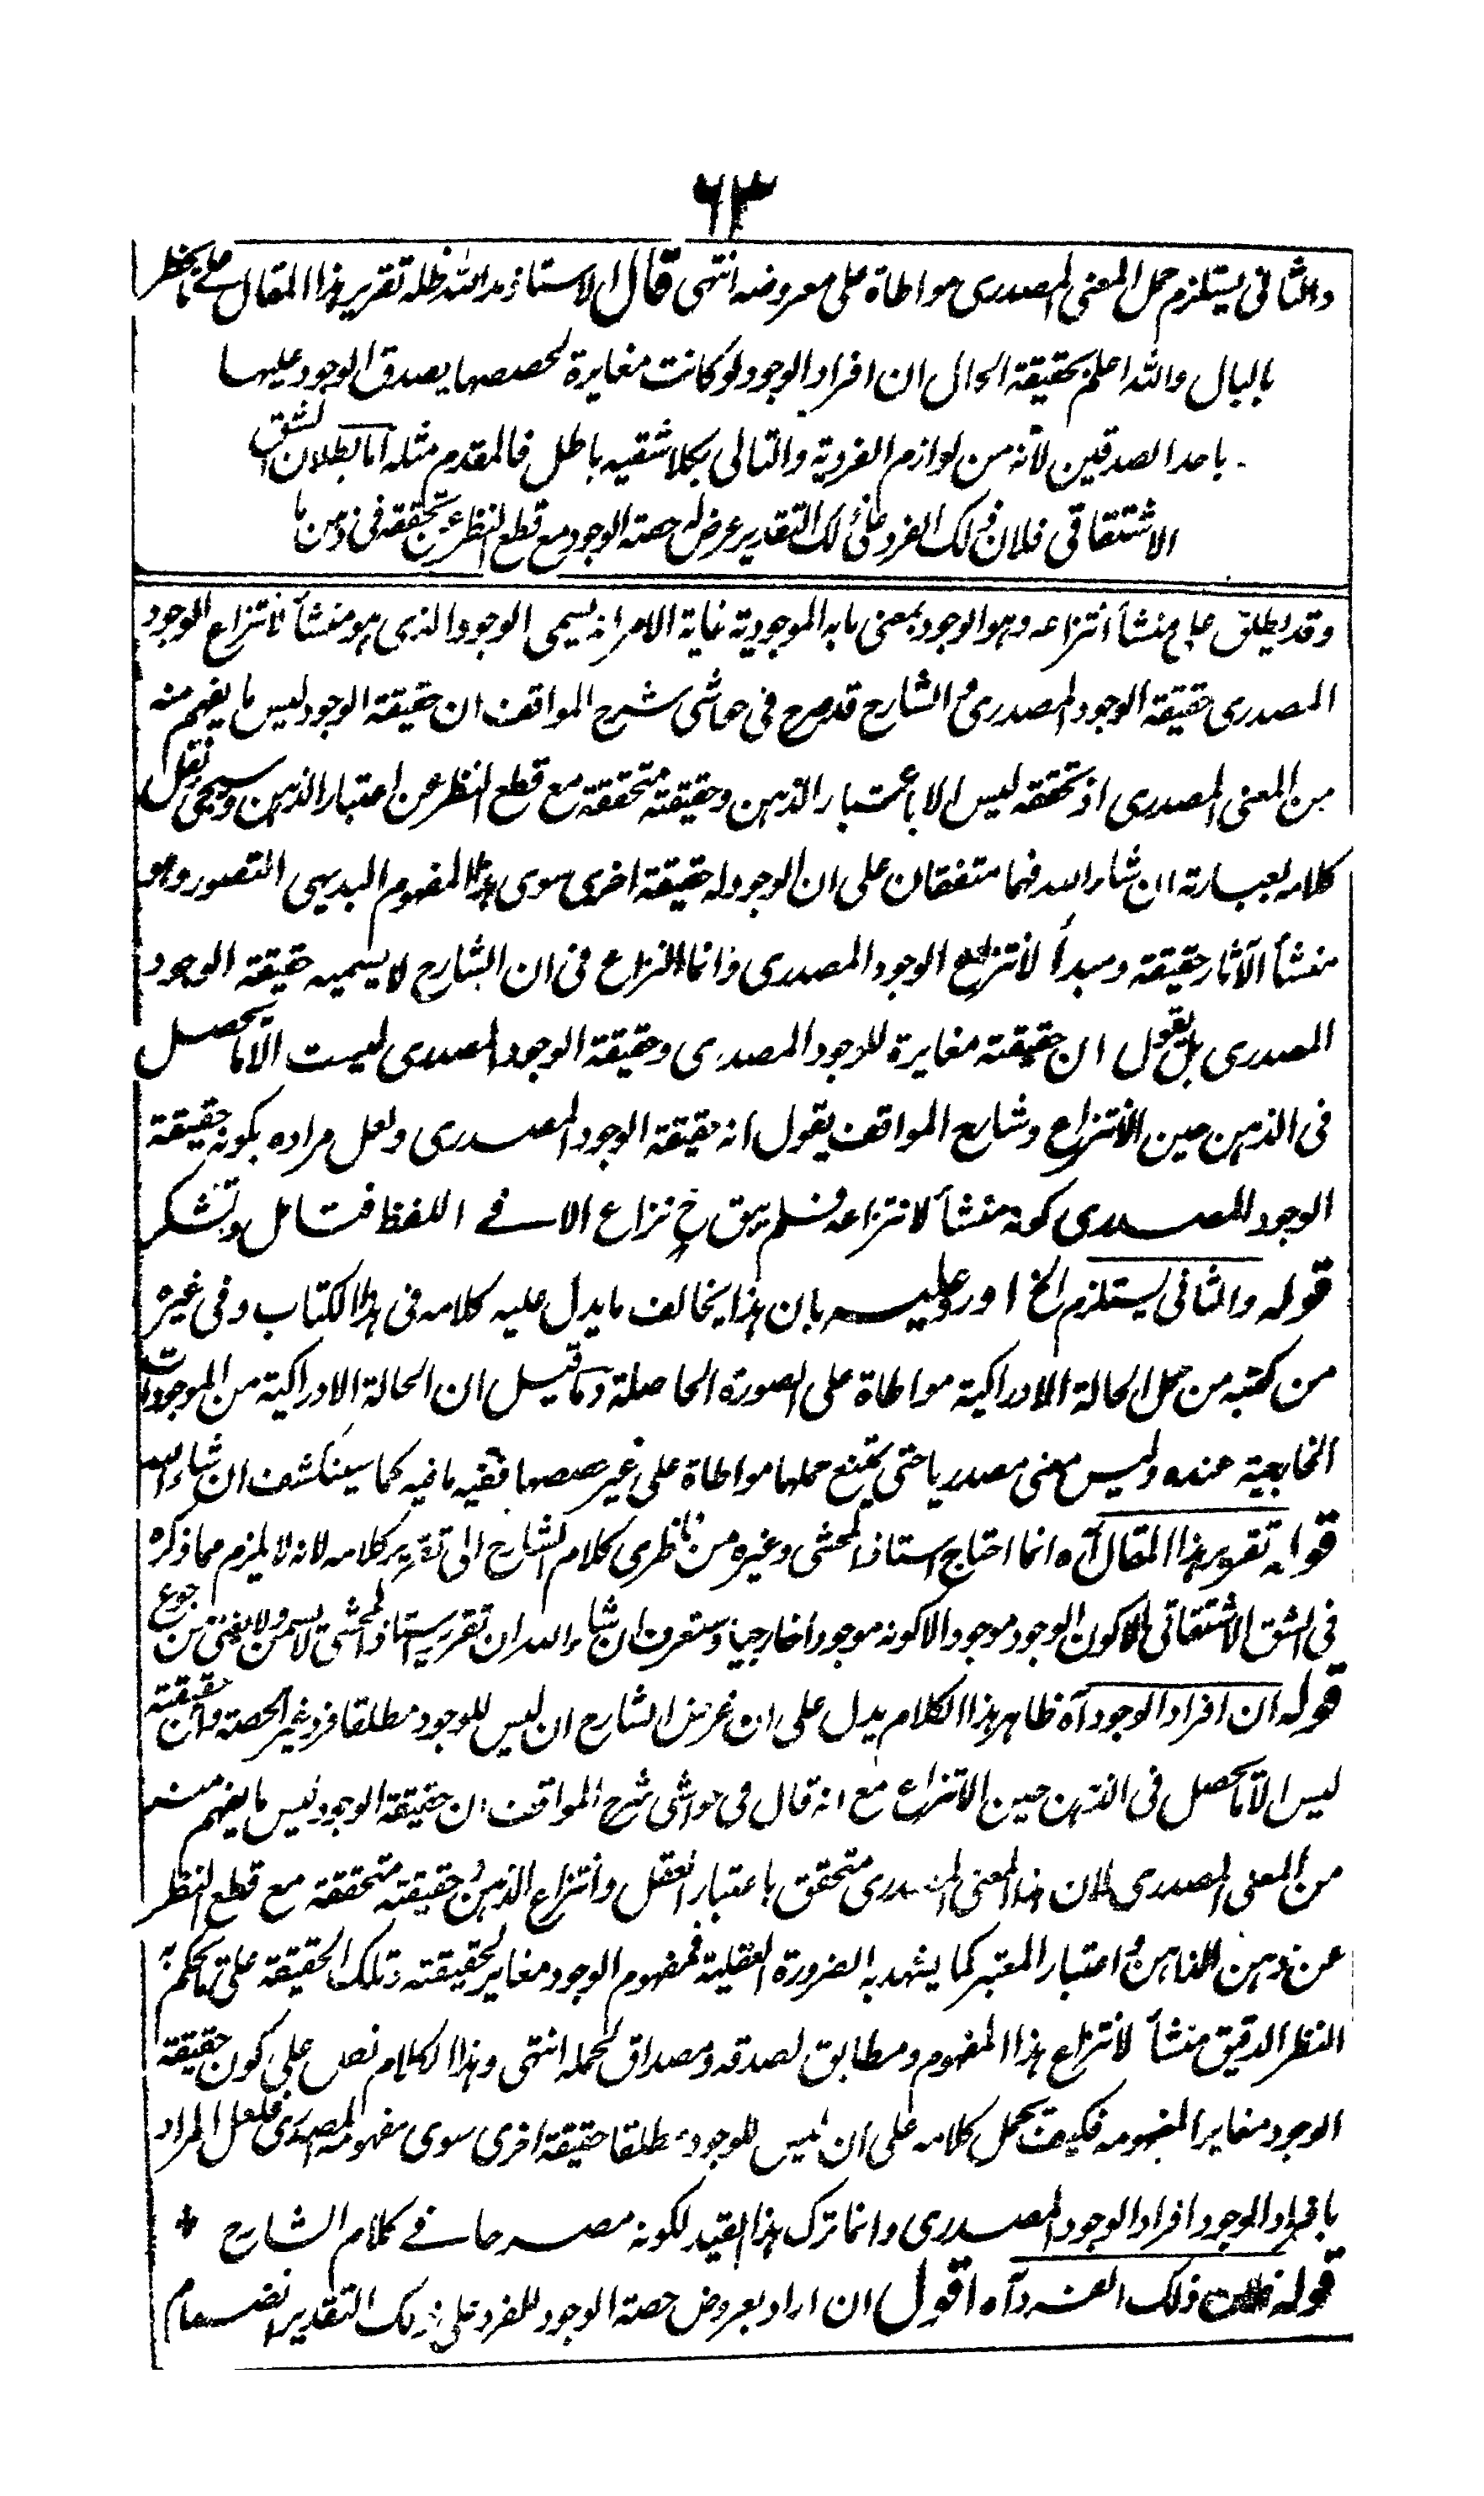 ٦٣
والثاني يستلزم حمل المعنى المصدري مواطاة على معروضه انتهى قال الاستاذ مد الله ظله تقرير هذا المقال على ما يخطر
بالبال والله اعلم بحقيقة الحال ان افراد الوجود لو كانت مغايرة لحصصها يصدق الوجود عليها
باحد الصدقين لانه من لوازم الفردية والتالي بكلا شقيه باطل فالمقدم مثله اما بطلان الشق
الاشتقاقي فلان ذلك الفرد على ذلك التقدير عرض له حصة الوجود مع قطع النظر عن تحققه في ذهن ما
وقد يطلق على منشأ انتزاعه وهو الوجود بمعنى ما به الموجودية غاية الامر انه يسمى الوجود الذي هو منشأ لانتزاع الوجود
المصدري حقيقة الوجود المصدري والشارح قد صرح في حاشي شرح المواقف ان حقيقة الوجود ليس ما يفهم منه
من المعنى المصدري اذ تحققه ليس الا باعتبار الذهن وحقيقته متحققة مع قطع النظر عن اعتبار الذهن وسيجئ نقل
كلامه بعبارته ان شاء الله فهما متفقان على ان الوجود له حقيقة اخرى سوى هذا المفهوم البديهي التصور وهو
منشأ الآثار حقيقة ومبدأ لانتزاع الوجود المصدري وانما النزاع في ان الشارح لا يسميه حقيقة الوجود
المصدري بل يقول ان حقيقته مغايرة للوجود المصدري وحقيقة الوجود المصدري ليست الا ما يحصل
في الذهن حين الانتزاع وشارح المواقف يقول انه حقيقة الوجود المصدري ولعل مراده بكونه حقيقة
الوجود المصدري كونه منشأ لانتزاعه فلم يبق ح نزاع الا في اللفظ فتامل وتشكر
قوله والثاني يستلزم الخ اورد عليه بان هذا يخالف ما يدل عليه كلامه في هذا الكتاب وفي غيره
من كتبه من حمل الحالة الادراكية مواطاة على الصورة الحاصلة وما قيل ان الحالة الادراكية من الموجودات
الخارجية عنده وليس معنى مصدريا حتى يمتنع حملها مواطاة على غير حصصها ففيه ما فيه كما سينكشف ان شاء الله
قوله تقرير هذا المقال آه انما احتاج استاذ المحشي وغيره من ناظري كلام الشارح الى تقرير كلامه لانه لا يلزم مما ذكره
في الشق الاشتقاقي الا كون الوجود موجودا لا كونه موجودا خارجيا وستعرف ان شاء الله ان تقرير استاذ المحشي لا يسمن ولا يغني من جوع
قوله ان افراد الوجود آه ظاهر هذا الكلام يدل على ان غرض الشارح ان ليس للوجود مطلقا فرد غير الحصة وان حقيقته
ليس الا ما يحصل في الذهن حين الانتزاع مع انه قال في حواشي شرح المواقف ان حقيقة الوجود ليس ما يفهم منه
من المعنى المصدري لان هذا المعنى المصدري متحقق باعتبار العقل وانتزاع الذهن وحقيقته متحققة مع قطع النظر
عن ذهن الذاهن واعتبار المعتبر كما يشهد به الضرورة العقلية فمفهوم الوجود مغاير لحقيقته وتلك الحقيقة على ما يحكم به
النظر الدقيق منشأ لانتزاع هذا المفهوم ومطابق لصدقه ومصداق لحمله انتهى وهذا الكلام نص على كون حقيقة
الوجود مغايرا لمفهومه فكيف يحمل كلامه على ان ليس للوجود مطلقا حقيقة اخرى سوى مفهومه المصدري فلعل المراد
بافراد الوجود افراد الوجود المصدري وانما ترك هذا القيد لكونه مصرحا في كلام الشارح +
قوله فلان ذلك الفرد آه اقول ان اراد بعروض حصة الوجود للفرد على ذلك التقدير انضمام